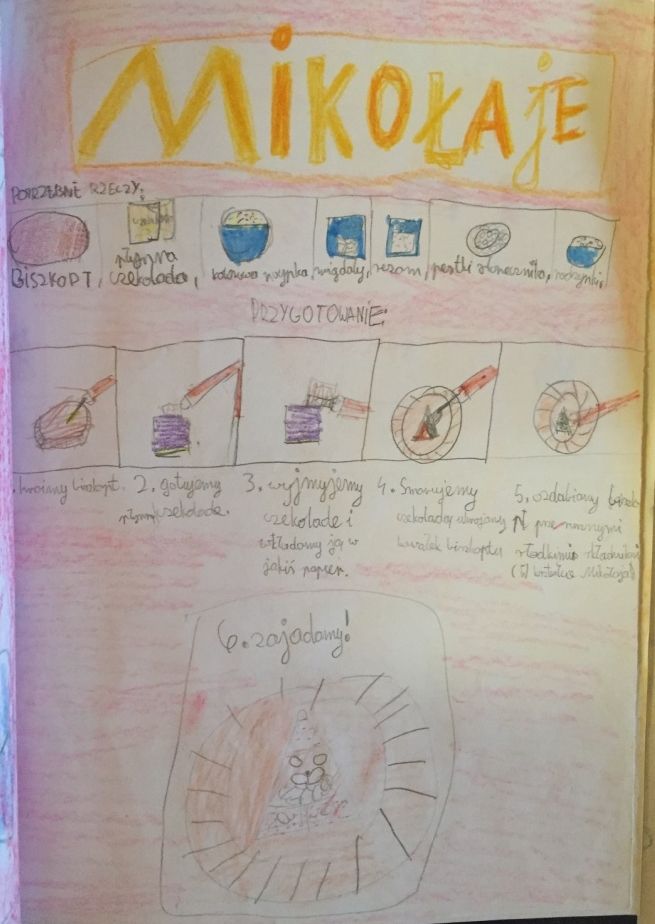 MIKOŁAJE
POTRZEBNE RZECZY:
BISZKOPT, płynna czekolada, kolorowa posypka, migdały, sezam, pestki słonecznika, rodzynki,
PRZYGOTOWANIE:
1. kroimy biszkopt. 2. gotujemy płynną czekoladę. 3. wyjmujemy czekoladę i wkładamy ją w jakiś papier. 4. Smarujemy czekoladą ukrojony kawałek biszkoptu 5. ozdabiamy
(W kształcie Mikołaja)
6. zajadamy!